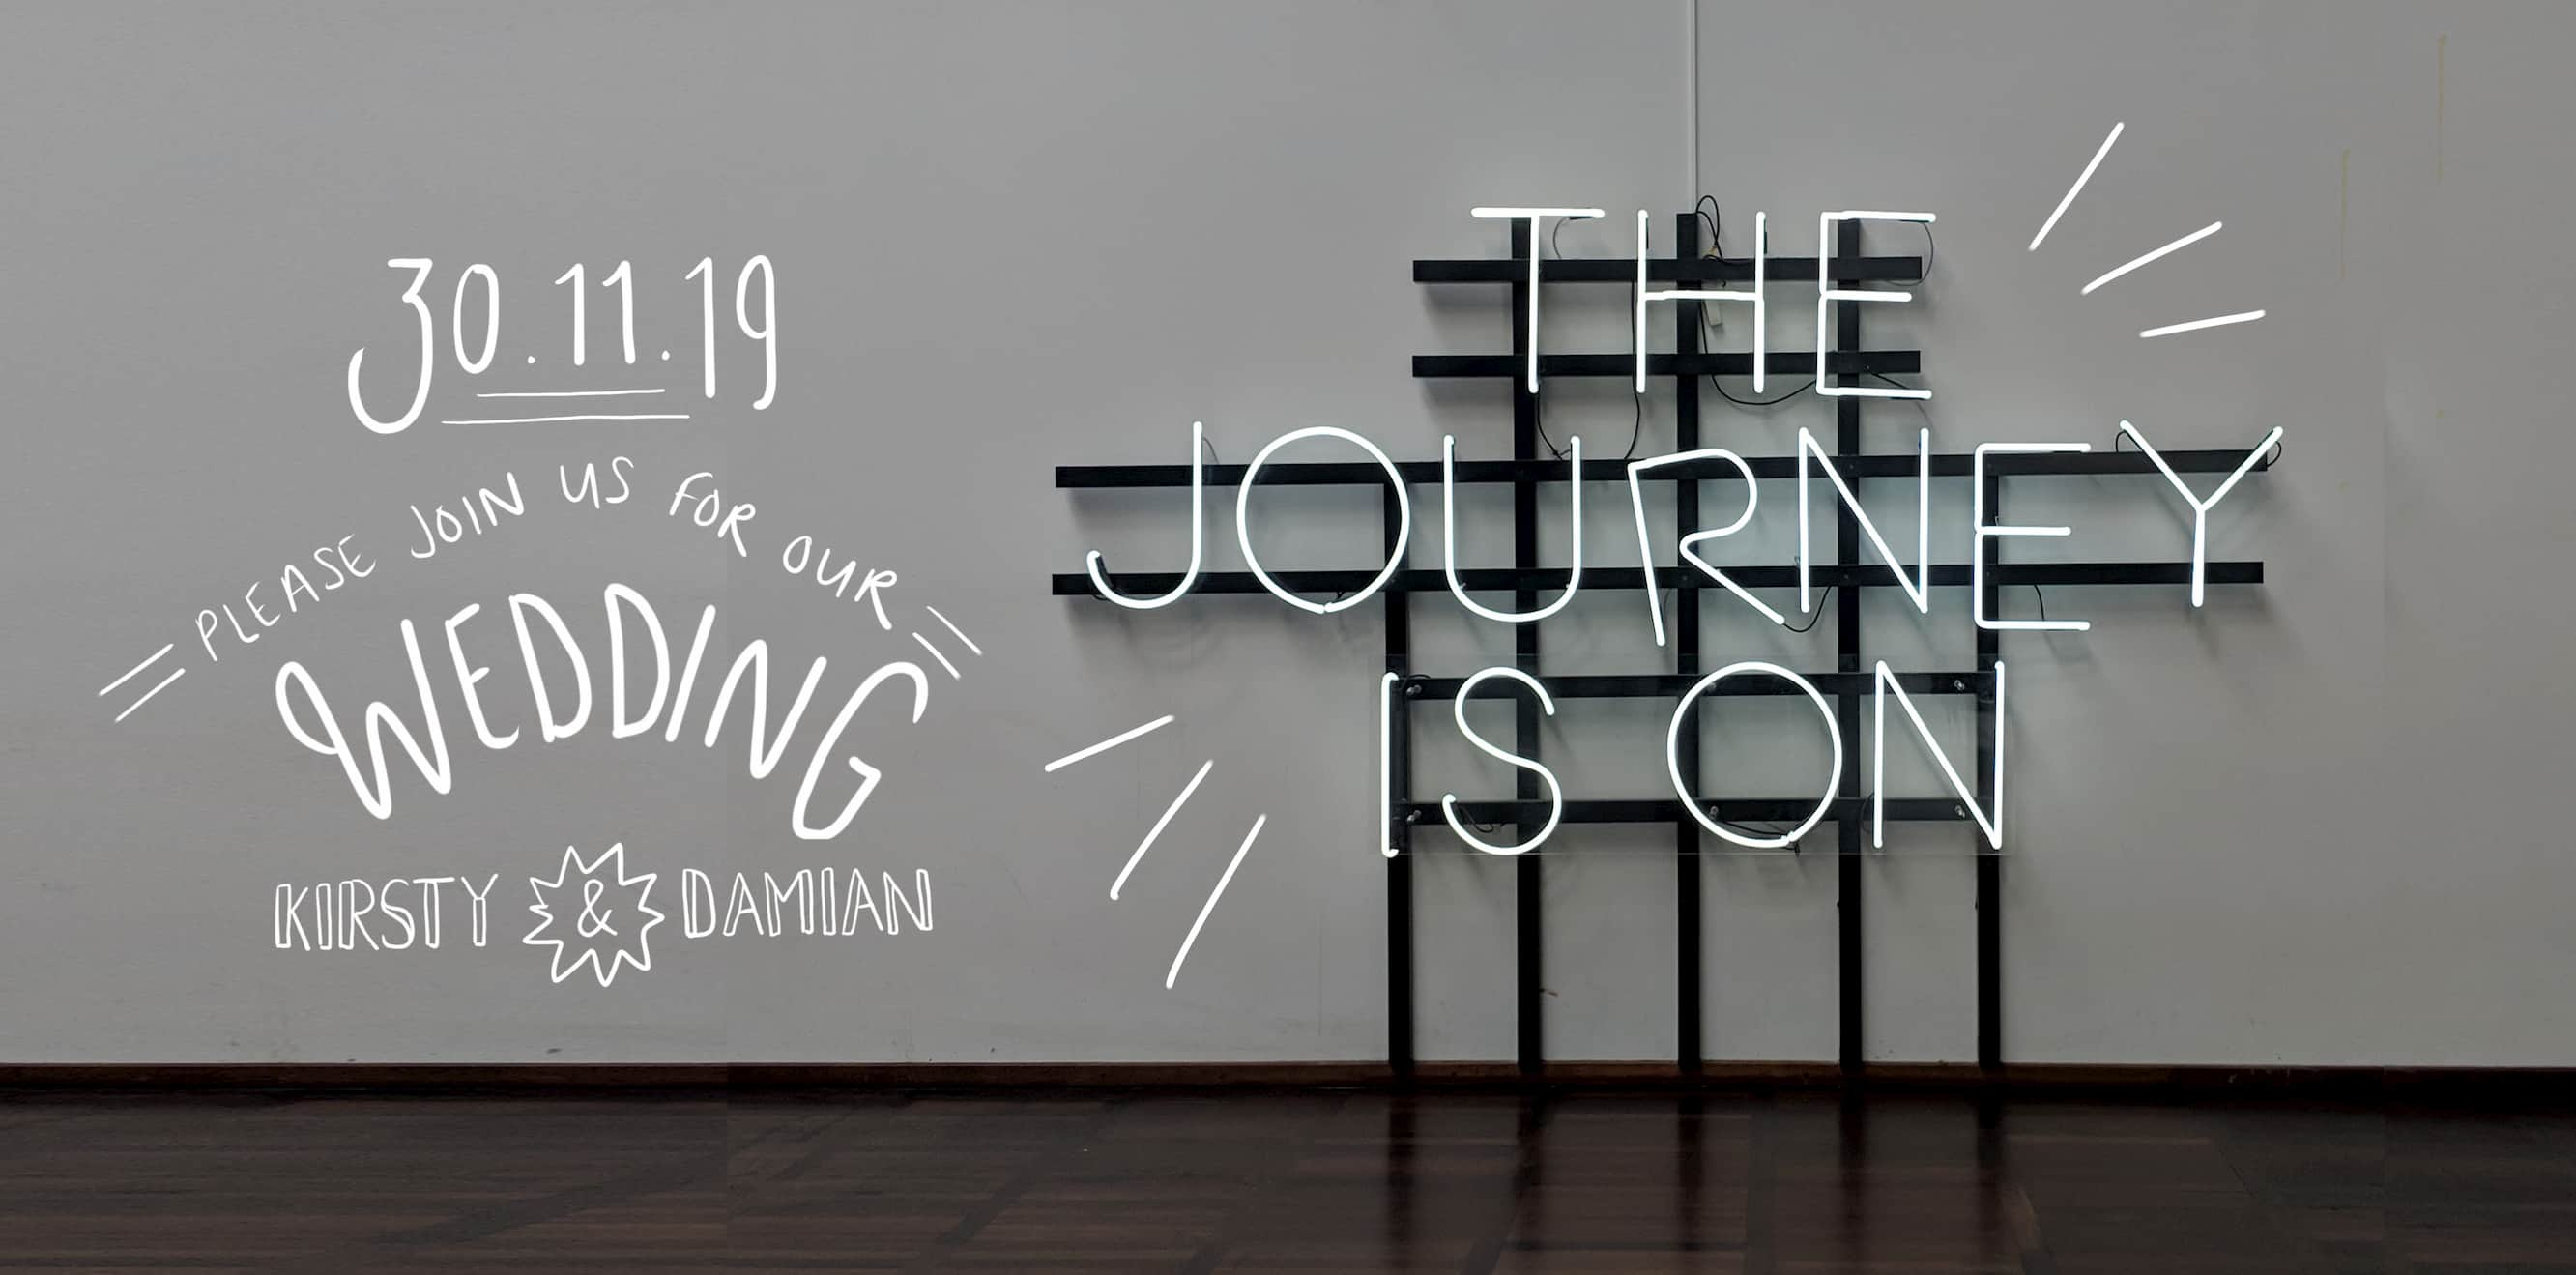 30.11.19
PLEASE JOIN US FOR OUR
WEDDING
KIRSTY & DAMIAN
THE
JOURNEY
IS ON